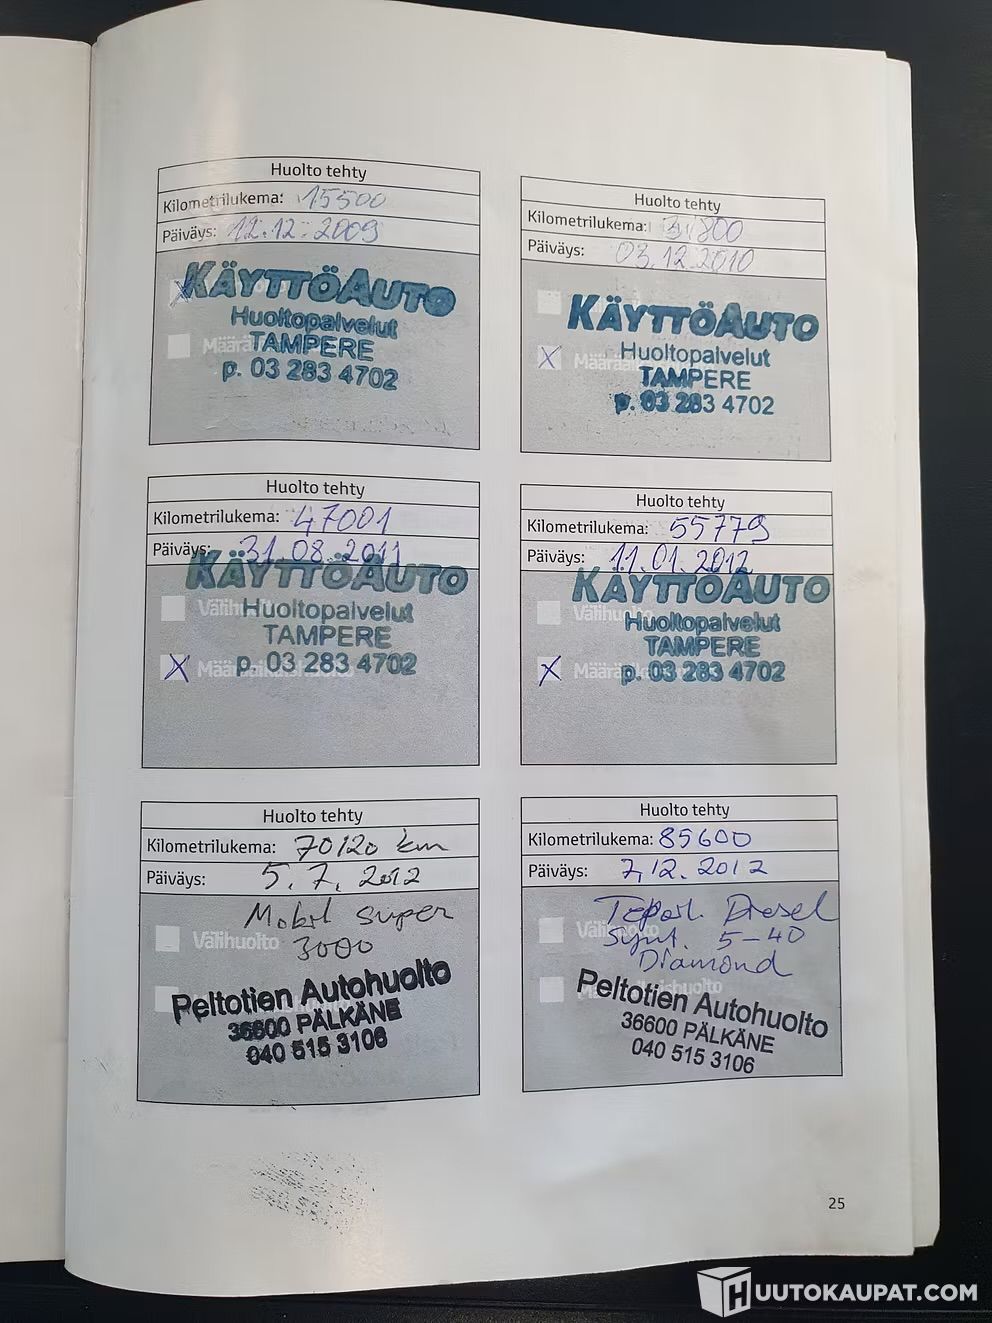 Huolto tehty
Kilometrilukema: 15500
Päiväys: 12.12.2009
KÄYTTÖAUTO
Huoltopalvelut
TAMPERE
p. 03 283 4702
Huolto tehty
Kilometrilukema: 31800
Päiväys: 03.12.2010
KÄYTTÖAUTO
Huoltopalvelut
TAMPERE
p. 03 283 4702
Huolto tehty
Kilometrilukema: 47001
Päiväys: 31.08.2011
KÄYTTÖAUTO
Välihuolto
Huoltopalvelut
TAMPERE
Määräaikaishuolto
p. 03 283 4702
Huolto tehty
Kilometrilukema: 55779
Päiväys: 11.01.2012
KÄYTTÖAUTO
Välihuolto
Huoltopalvelut
TAMPERE
p. 03 283 4702
Huolto tehty
Kilometrilukema: 70120 km
Päiväys: 5.7.2012
Mobil super
Välihuolto 3000
Peltotien Autohuolto
36600 PÄLKÄNE
040 515 3106
Huolto tehty
Kilometrilukema: 85600
Päiväys: 7.12.2012
Diesel
Synt. 5-40
Diamond
Peltotien Autohuolto
36600 PÄLKÄNE
040 515 3106
25
HUUTOKAUPAT.COM